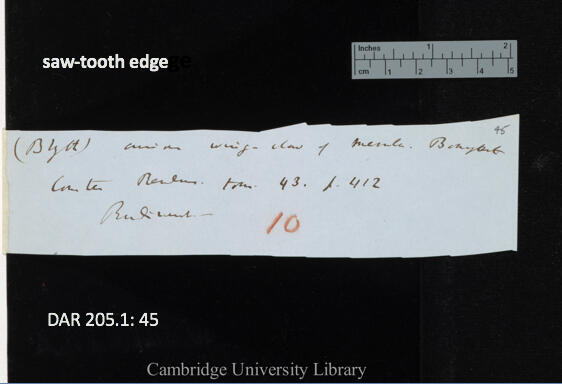 saw-tooth edge
Inches 1 2
cm 1 2 3 4 5
45
(Blyth) curious wing-claw of
Comtes Rendus. tom. 43. p. 412
Rudiment —
10
DAR 205.1: 45
Cambridge University Library